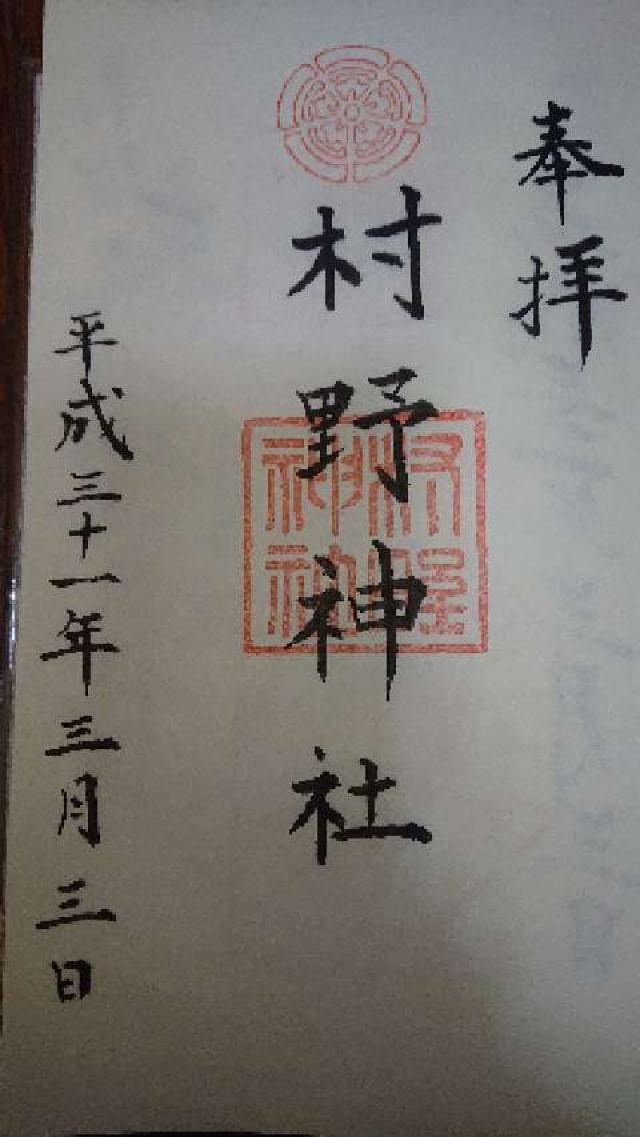 奉拝
村野神社
村野神社
平成三十一年三月三日